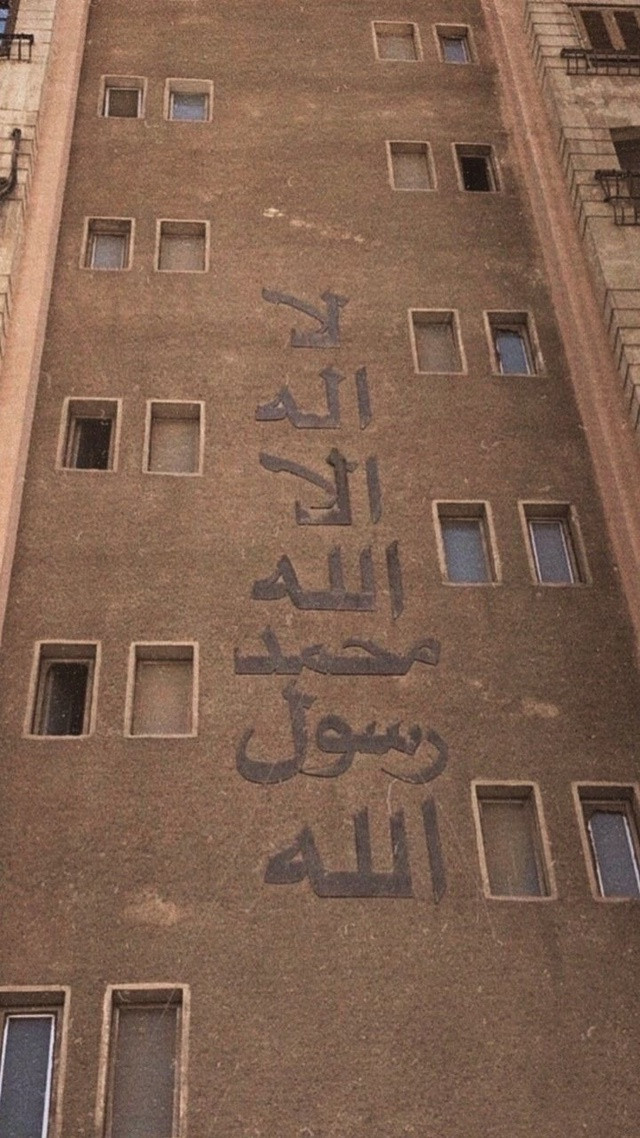 لا
اله
الا
الله
محمد
رسول
الله